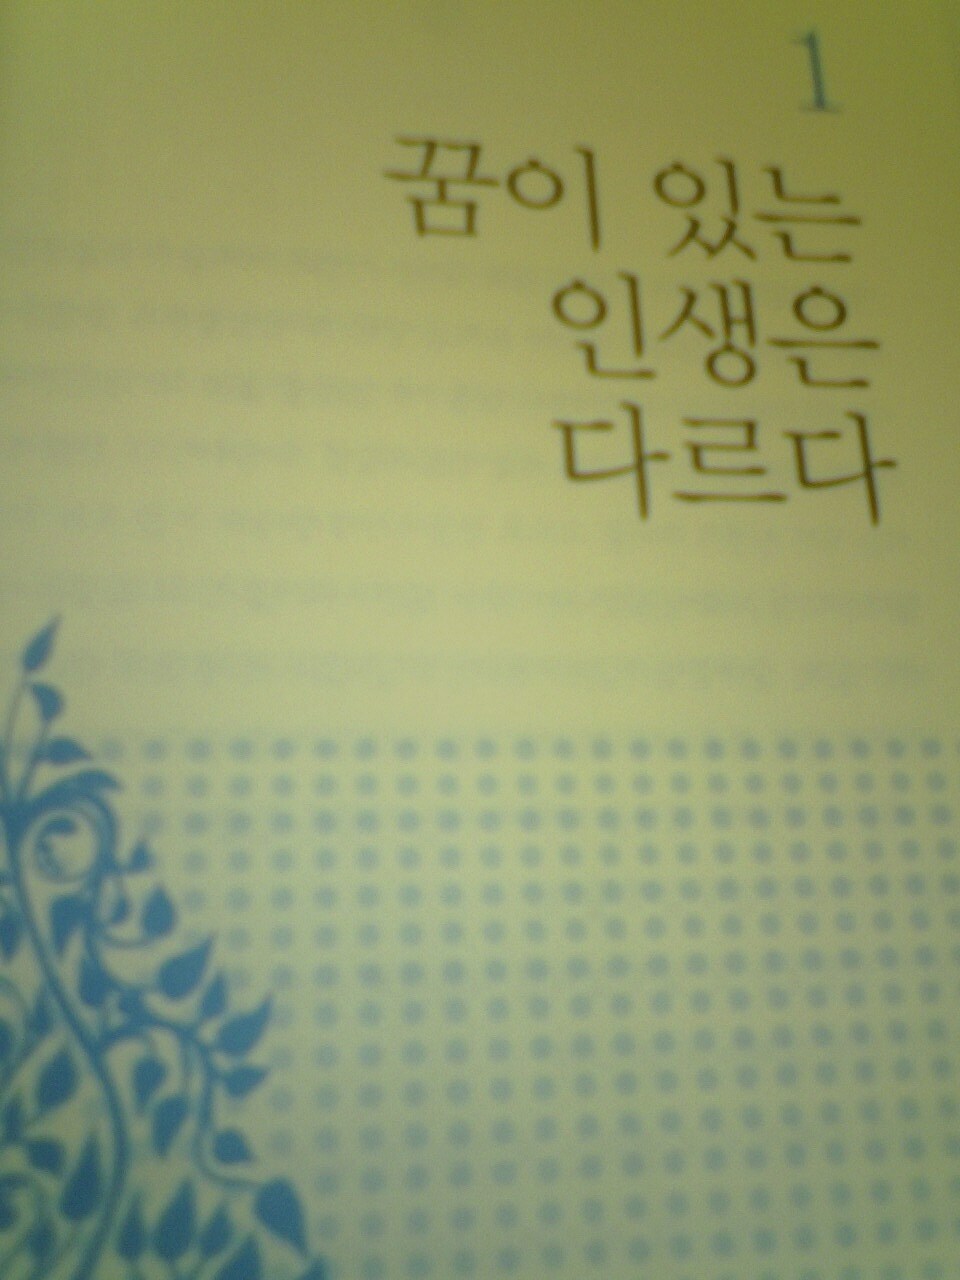 1
꿈이 있는
인생은
다르다